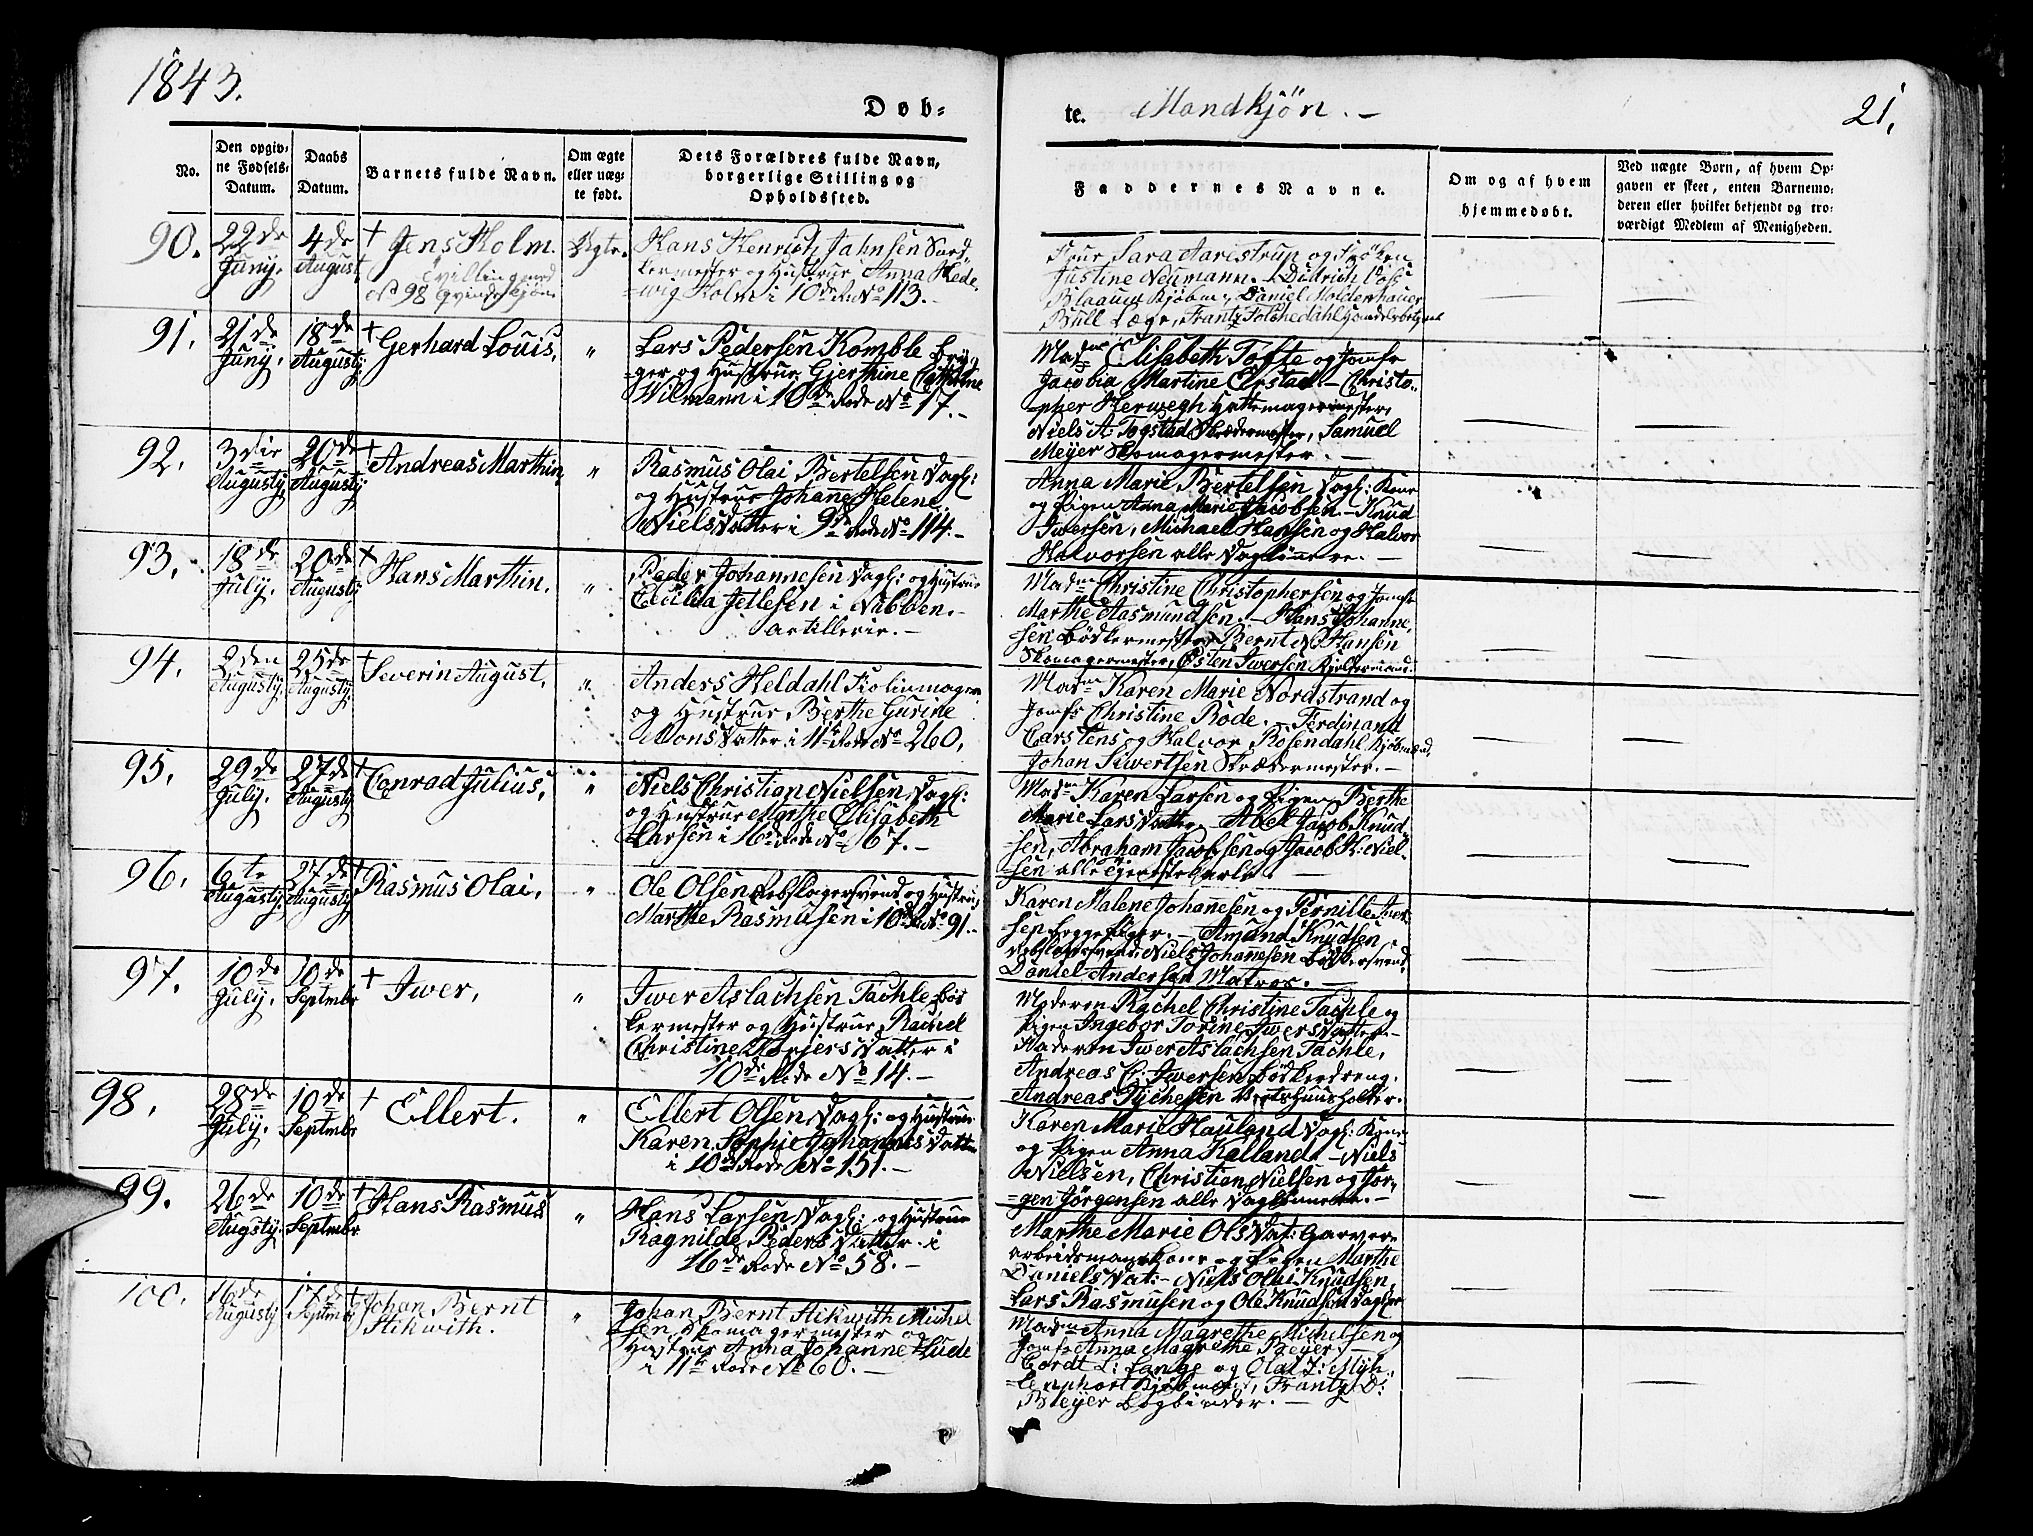 1843.
Døb-
te. Mandkjøn. -
21.
No.
Den opgiv-
ne Fødsels-
Datum.
Daabs
Datum.
Barnets fulde Navn.
Om ægte
eller uæg-
te født.
Dets Forældres fulde Navn,
borgerlige Stilling og
Opholdssted.
Faddernes Navne.
Om og af hvem
hjemmedøbt.
Ved uægte Børn, af hvem Op-
gaven er skeet, enten Barnemo-
deren eller hvilket bekjendt og tro-
værdigt Medlem af Menigheden.
90. 22de Juny. 4de August + Jens Holm. Ægte.
Tvilling med
No 98 Qvindekjøn.
Hans Henrich Jahnsen Sned-
kermester og Hustrue Anna Hede-
wig Holm i 10de Rode No 113. -
Frue Sara Aarestrup og Frøken
Justine Neumann. - Didrich
Blaauw Kjøbm., Daniel Moldenhauer
Bull Læge, Frantz Foldsedahl
91. 21de Juny. 18de Augusty + Gerhard Louis, "
Lars Pedersen Komble
og Hustrue Gjerthine Cathrine
Wilmann i 10de Rode No 17. -
Madme Elisabeth Tofte og Jomfr
Jacobia Martine Eirstad - Christo-
pher Herwegh Hattemagermester,
Niels A. Togstad Skrædermester, Samuel
Meyer Skomagermester. -
92. 3die Augusty 20de Augusty + Andreas Marthin, "
Rasmus Olai Bertelsen Dagl:
og Hustrue Johanne Helene
Niels Datter i 9de Rode No 114. -
Anna Marie Bertelsen Dagl: Kone
og Pigen Anna Marie Jacobsen. - Knud
Iwersen, Michael Hansen og Halvor
Halvorsen alle Daglønnere. -
93. 18de July. 20de Augusty + Hans Marthin. "
Peder Johannesen Dagl: og Hustrue
Cecilia Jellesen i Nubben. -
Artillerie. -
Madme Christine Christophersen og Jomfr
Marthe Aasmundsen. - Hans Johanne-
sen Bødkermester, Bernt N. Hansen
Skomagermester, Østen Iwersen
94. 2den Augusty 25de Augusty + Severin August, "
Anders Heldahl Fiolinmager
og Hustrue Berthe Gurine
Mons Datter i 11te Rode No 260.
Madme Karen Marie Nordstrand og
Jomfr Christine Bode. - Ferdinand
Carstens og Halvor Rosendahl Kjøbmænd,
Johan Siwertsen Skrædermester. -
95. 29de July. 27de Augusty + Conrad Julius, "
Niels Christian Nielsen Dagl:
og Hustrue Marthe Elisabeth
Larsen i 16de Rode No 67. -
Madme Karen Larsen og Pigen Berthe
Marie Lars Datter - Abel Jacob Knud-
sen, Abraham Jacobsen og Jacob K: Niel-
sen alle Tjenestekarle -
96. 6te Augusty 27de Augusty + Rasmus Olai, "
Ole Olsen Rebslagersvend og Hustrue
Marthe Rasmusen i 10de Rode No 91. -
Karen Malene Johannesen og Pernille Iwer-
sen begge Piger. - Amund Knudsen
Rebslagersvend, Niels Johannesen Bødkersvend,
Daniel Andersen Matros. -
97. 10de July. 10de Septmbr + Iwer, "
Iwer Aslachsen Tachle Bød-
kermester og Hustrue Rachel
Christine Torjers Datter i
10de Rode No 14. -
Moderen Rachel Christine Tachle og
Pigen Ingebor Torine Iwers Datter -
Faderen Iwer Aslachsen Tachle,
Andreas C: Iwersen Bødkerdreng.
Andreas Tychesen Wertshuusholder.
98. 28de July. 10de Septmbr + Ellert. "
Ellert Olsen Dagl: og Hustrue
Karen Sophie Johannes Datter
i 10de Rode No 151. -
Karen Marie Hauland Dagl: Kone
og Pigen Anna Kalland - Niels
Nielsen, Christian Nielsen og Jør-
gen Jörgensen alle Daglønnere. -
99. 26de Augsty. 10de Septmbr + Hans Rasmus "
Hans Larsen Dagl: og Hustrue
Ragnilde Peders Datter i
16de Rode No 58. -
Marthe Marie Ols Dat: Garver-
arbeidsmands Kone og Pigen Marthe
Daniels Dat: - Niels Olai Knudsen,
Lars Rasmusen og Ole Knudsen Dagl:
100. 16de Augusty 17de Septmbr + Johan Bernt
Stikwith. "
Johan Bernt Stikwith Michel-
sen Skomagermester og
Hustrue Anna Johanne Lude
i 11te Rode No 60. -
Madme Anna Magrethe Michelsen og
Jomfr Anna Magrethe Meyer. -
Cordt L: Lange og Olai J: Myh-
lenphort Kjøbmænd, Frantz D:
Bleyer Bogbinder. -